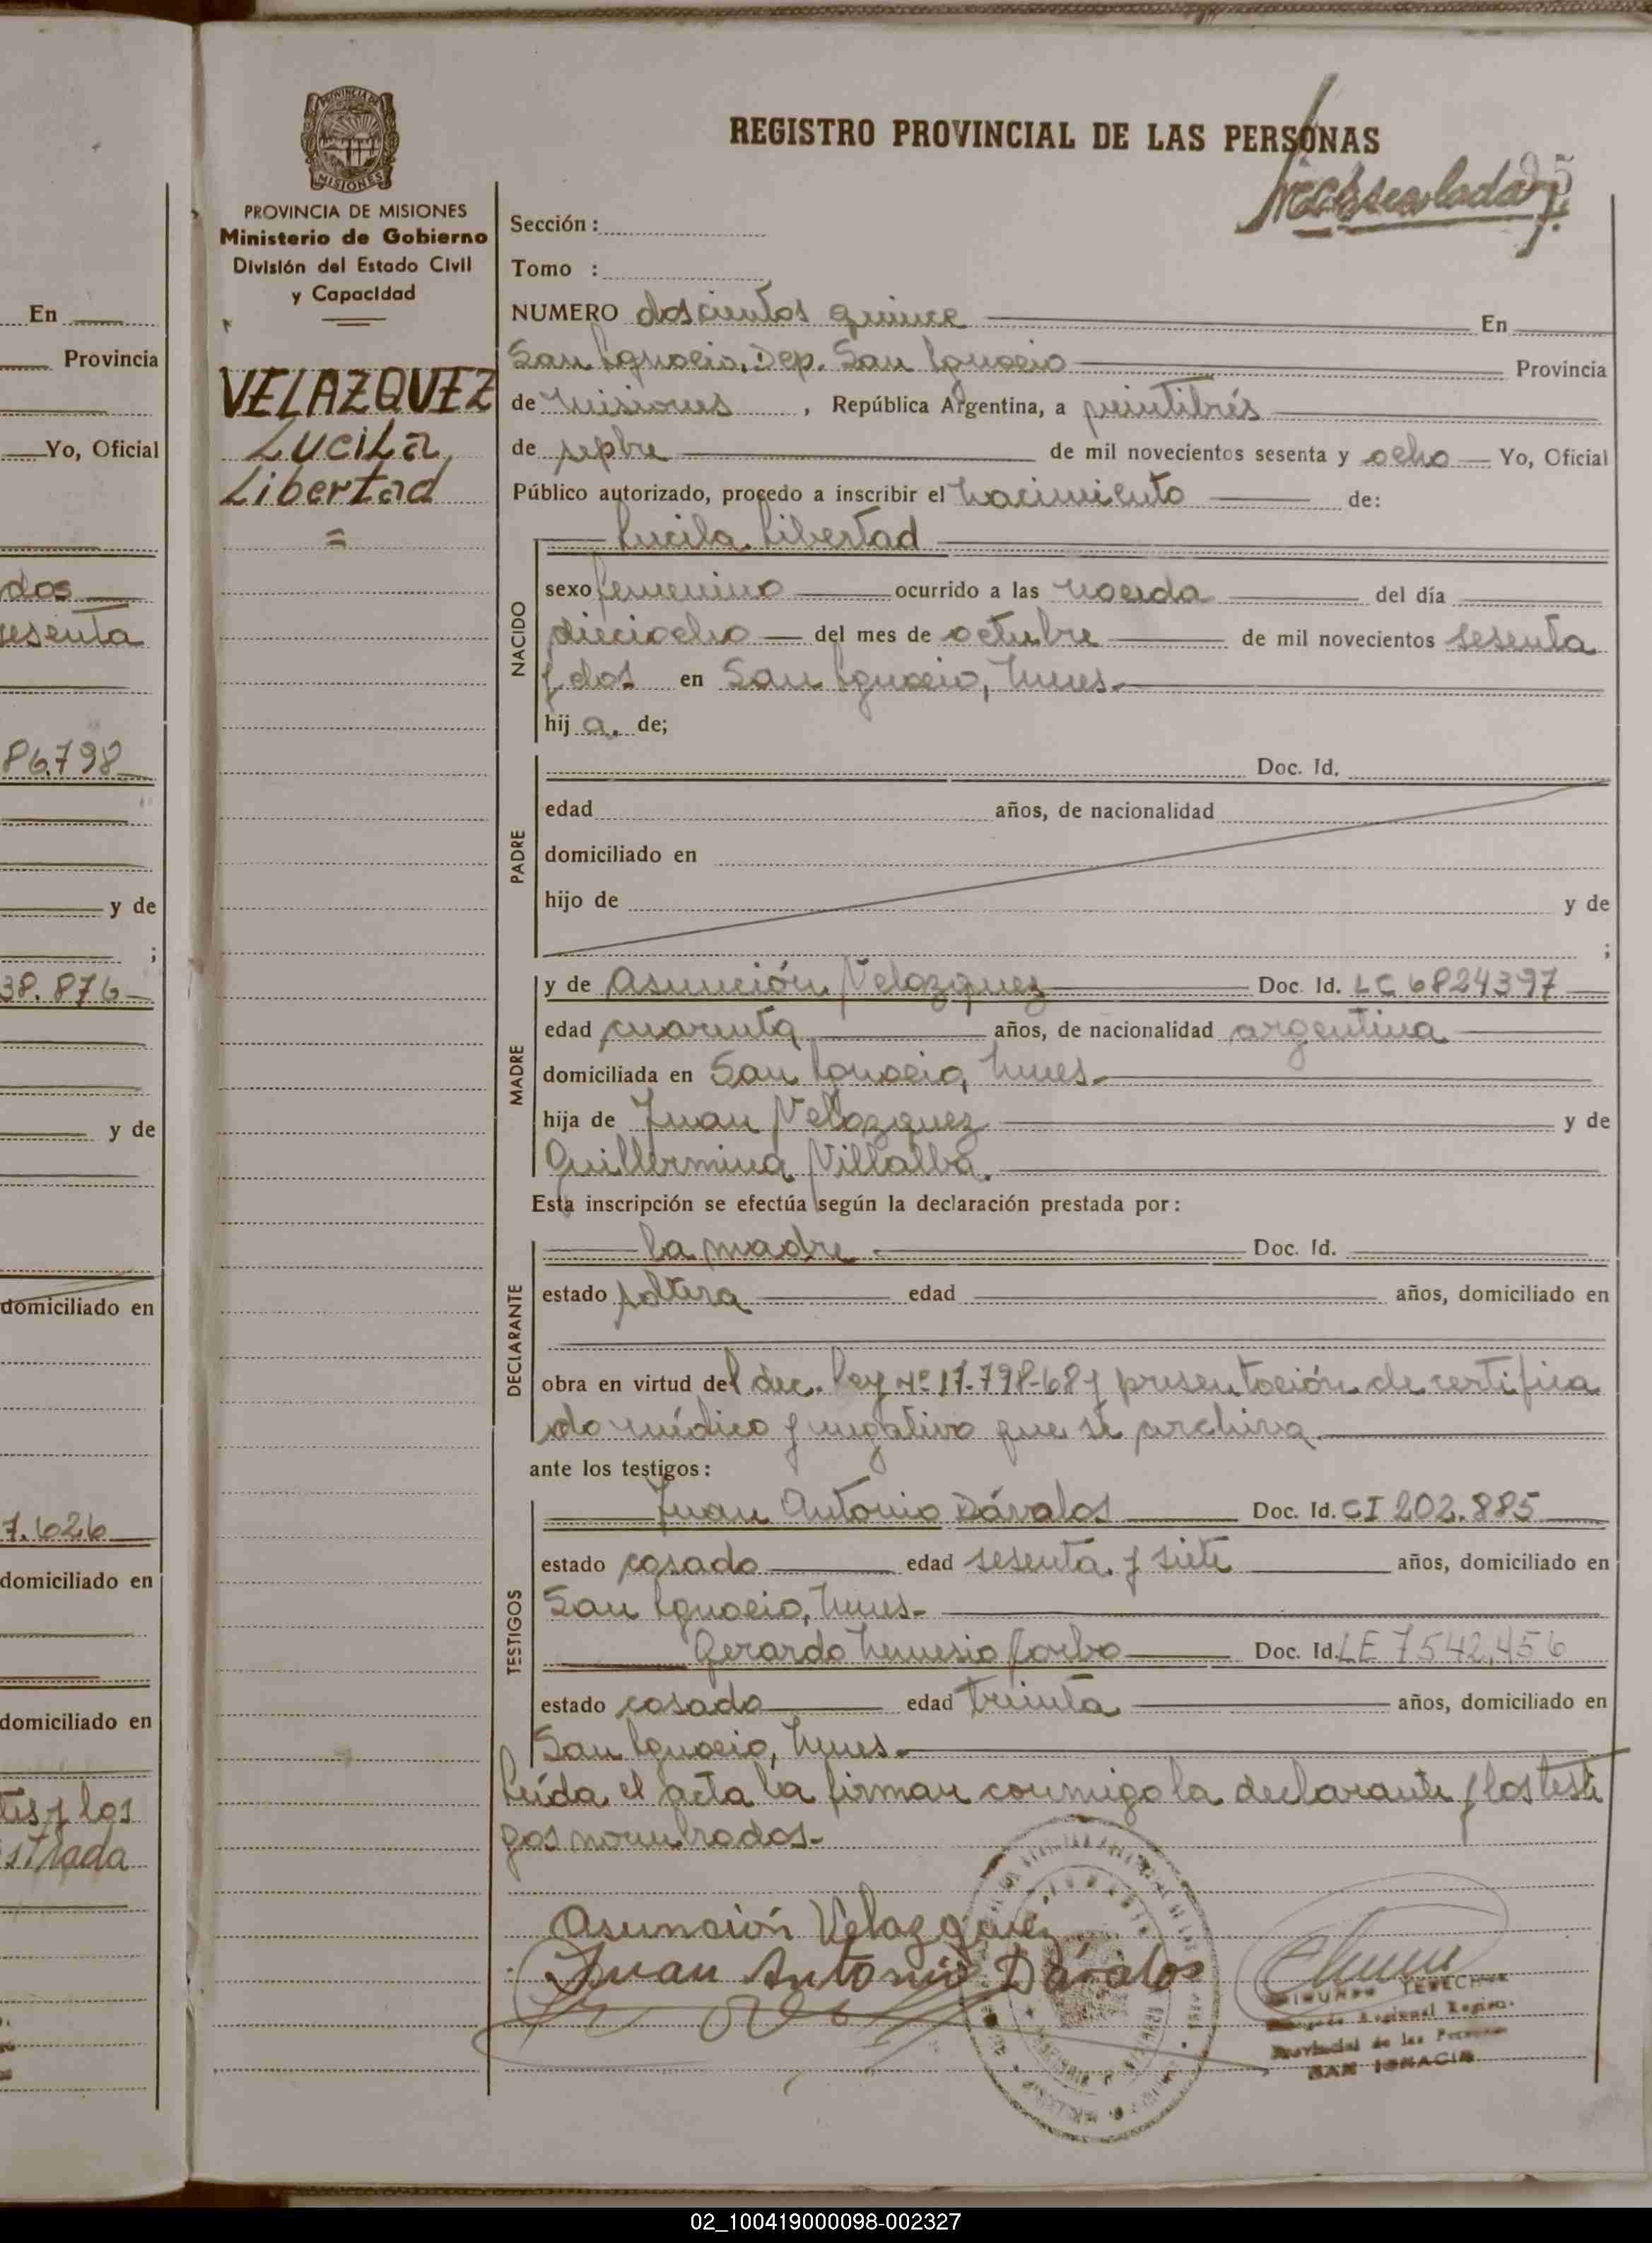 REGISTRO PROVINCIAL DE LAS PERSONAS
PROVINCIA DE
MISIONES
PROVINCIA DE MISIONES
Ministerio de Gobierno
División del Estado Civil
y Capacidad
VELAZQUEZ
Lucila
Libertad
=
Sección :
Tomo :
NUMERO doscientos quince En
San Ignacio, Dep. San Ignacio Provincia
de Misiones , República Argentina, a veintitrés
de sepbre de mil novecientos sesenta y ocho Yo, Oficial
Público autorizado, procedo a inscribir el nacimiento de:
Lucila Libertad
NACIDO
sexo femenino ocurrido a las del día
dieciocho del mes de octubre de mil novecientos sesenta
y dos en San Ignacio, Mnes.
hij a. de;
PADRE
Doc. Id.
edad años, de nacionalidad
domiciliado en
hijo de y de
;
MADRE
y de Asunción Velazquez Doc. Id. LC 6824397
edad cuarenta años, de nacionalidad argentina
domiciliada en San Ignacio, Mnes.
hija de Juan Velazquez y de
Guillermina Villalba.
Esta inscripción se efectúa según la declaración prestada por :
DECLARANTE
la madre Doc. Id.
estado soltera edad años, domiciliado en
obra en virtud del dec. ley nº 17.798-68 y presentación de certifica
do médico y negativo que se archiva.
ante los testigos :
TESTIGOS
Juan Antonio Dávalos Doc. Id. CI 202.885
estado casado edad sesenta y siete años, domiciliado en
San Ignacio, Mnes.
Gerardo Nemesio Doc. Id. LE 7542.456
estado casado edad treinta años, domiciliado en
San Ignacio, Mnes.
Leída el acta la firman conmigo la declarante y los testi
gos nombrados.-
Asunción Velazquez
Juan Antonio Dávalos
Provincial de las Personas
SAN IGNACIO
En
Provincia
Yo, Oficial
dos
sesenta
86.798
y de
;
38.876
y de
domiciliado en
7.626
domiciliado en
domiciliado en
tes y los
strada
02_100419000098-002327